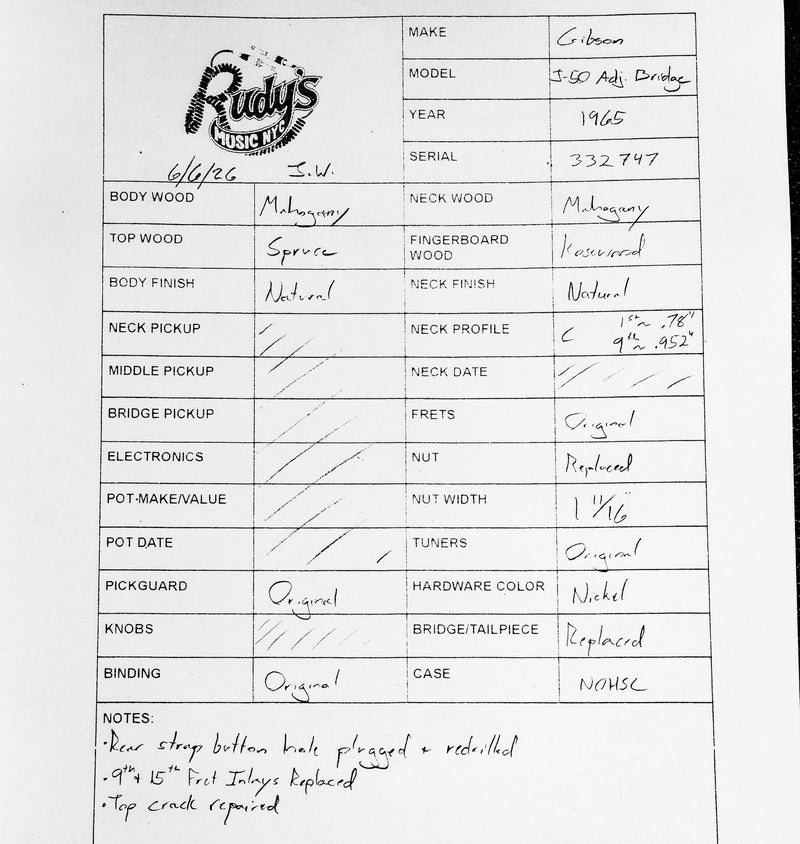 Rudy's
MUSIC NYC
6/6/26 J.W.
MAKE Gibson
MODEL J-50 Adj. Bridge
YEAR 1965
SERIAL 332747
BODY WOOD Mahogany NECK WOOD Mahogany
TOP WOOD Spruce FINGERBOARD WOOD Rosewood
BODY FINISH Natural NECK FINISH Natural
NECK PICKUP NECK PROFILE C 1st ~ .78"
9th ~ .952"
MIDDLE PICKUP NECK DATE
BRIDGE PICKUP FRETS Original
ELECTRONICS NUT Replaced
POT-MAKE/VALUE NUT WIDTH 1 11/16"
POT DATE TUNERS Original
PICKGUARD Original HARDWARE COLOR Nickel
KNOBS BRIDGE/TAILPIECE Replaced
BINDING Original CASE NOHSC
NOTES:
•Rear strap button hole plugged + redrilled
•9th + 15th Fret Inlays Replaced
•Top crack repaired